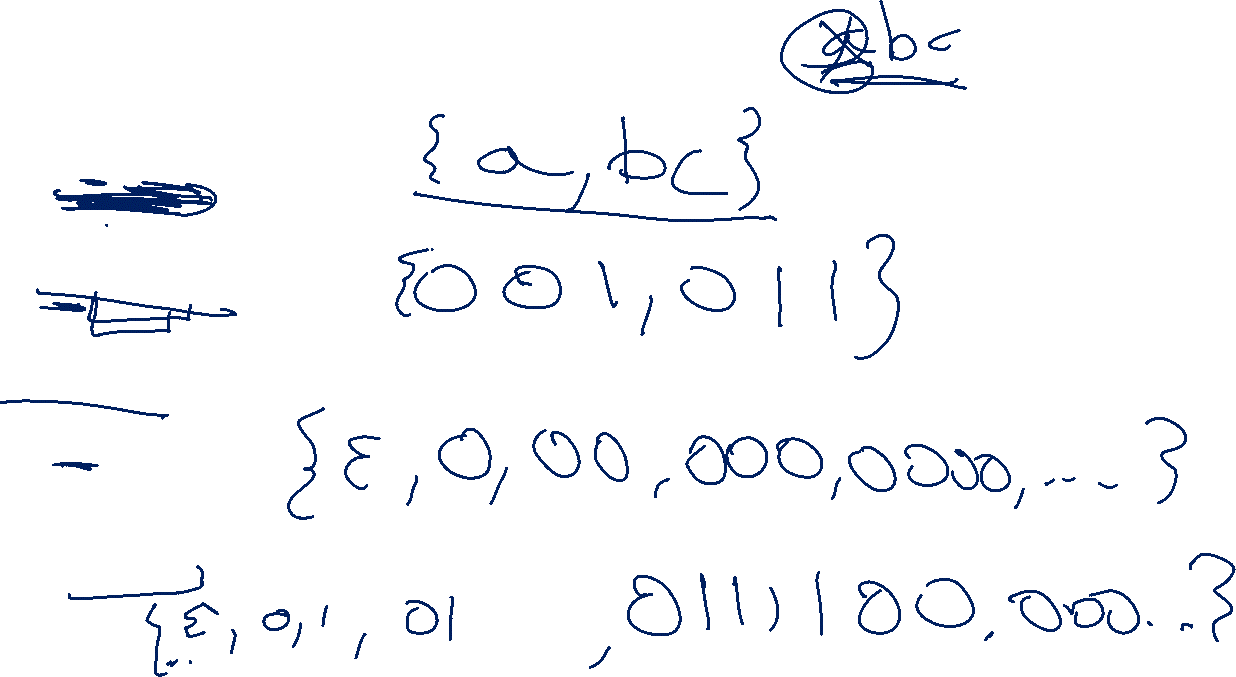 abc
{a,bc}
{001,011}
{ε,0,00,000,0000,...}
{ε,0,1,01 ,011,100,000...}